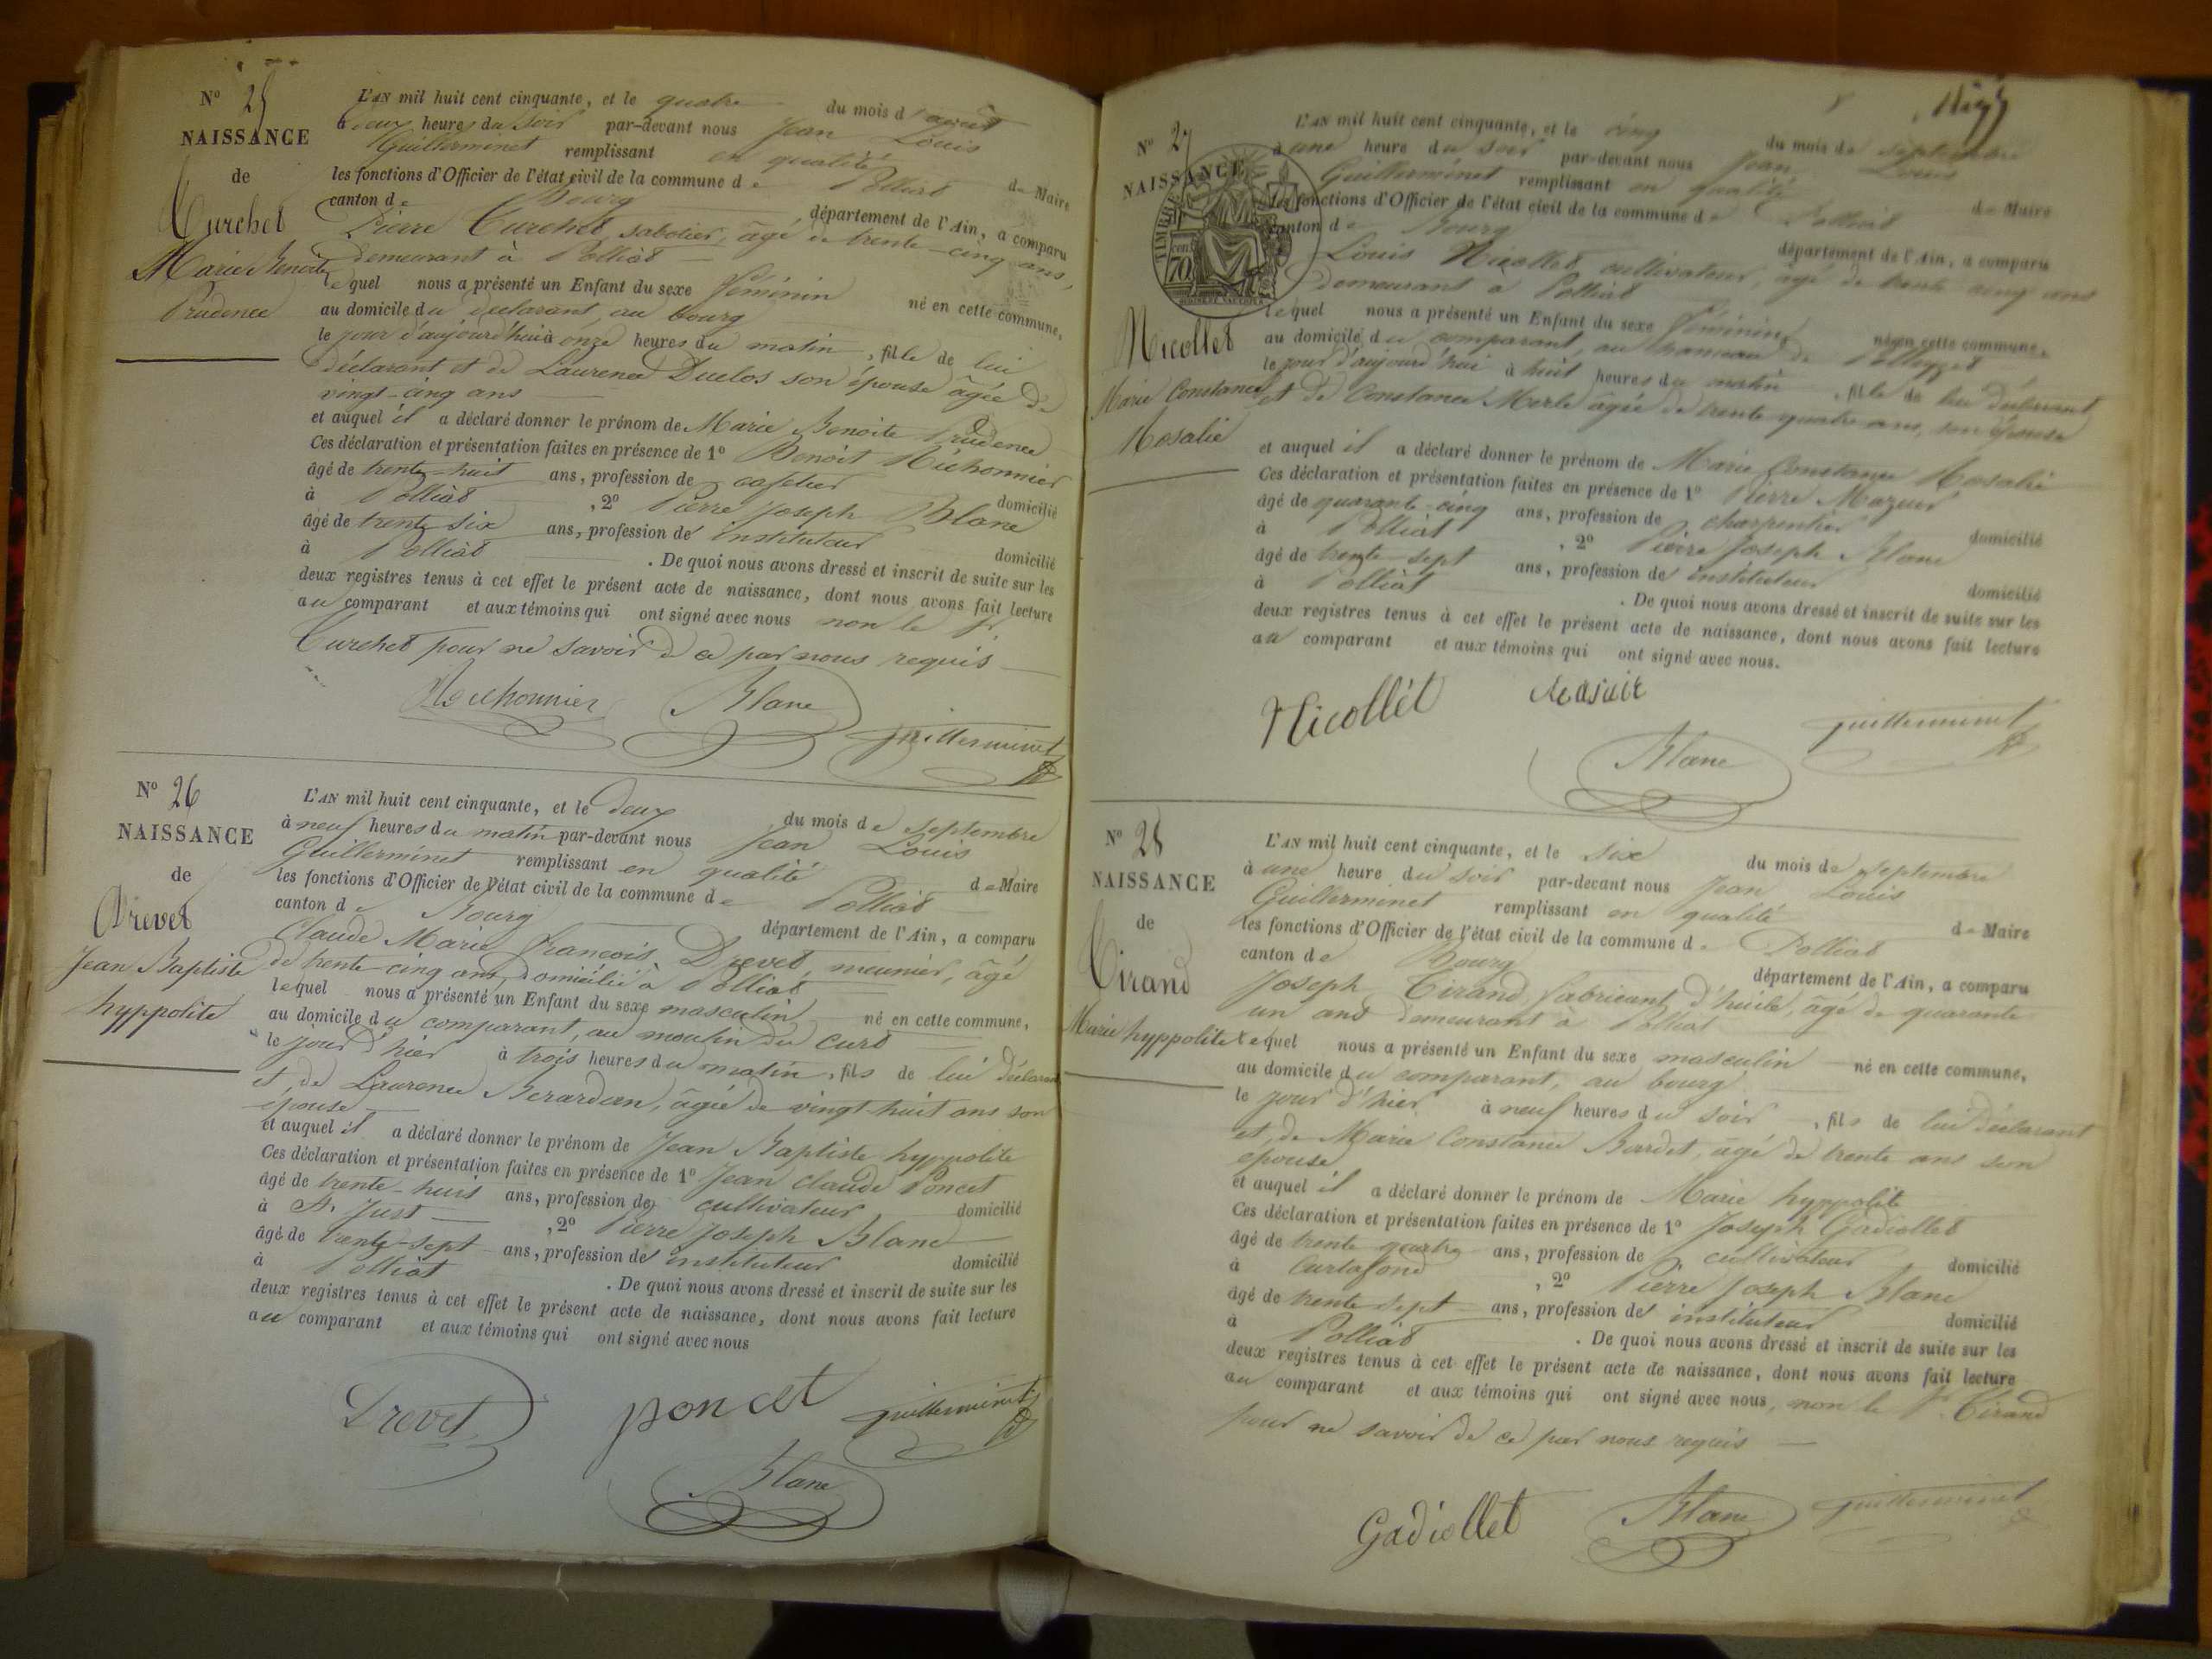 N° 25
NAISSANCE
de
Curchet
Marie Benoite
Prudence
L'AN mil huit cent cinquante, et le quatre du mois d'août
à deux heures du soir par-devant nous Jean Louis
Guillerminet remplissant en qualité de Maire
les fonctions d'Officier de l'état civil de la commune de Polliat
canton de Bourg département de l'Ain, a comparu
Pierre Curchet, sabotier, âgé de trente-cinq ans,
demeurant à Polliat
lequel nous a présenté un Enfant du sexe féminin né en cette commune,
au domicile du déclarant, au bourg
le jour d'aujourd'hui à onze heures du matin, fille de lui
déclarant et de Laurence Duclos son épouse âgée de
vingt-cinq ans
et auquel il a déclaré donner le prénom de Marie Benoite Prudence
Ces déclaration et présentation faites en présence de 1° Benoit Michonnier
âgé de trente-huit ans, profession de domicilié
à Polliat, 2° Pierre Joseph Blanc
âgé de trente six ans, profession de instituteur domicilié
à Polliat. De quoi nous avons dressé et inscrit de suite sur les
deux registres tenus à cet effet le présent acte de naissance, dont nous avons fait lecture
au comparant et aux témoins qui ont signé avec nous non le Sr
Curchet pour ne savoir de ce par nous requis
Michonnier Blanc
guillerminet
N° 26
NAISSANCE
de
Drevet
Jean Baptiste
hyppolite
L'AN mil huit cent cinquante, et le deux du mois de septembre
à neuf heures du matin par-devant nous Jean Louis
Guillerminet remplissant en qualité de Maire
les fonctions d'Officier de l'état civil de la commune de Polliat
canton de Bourg département de l'Ain, a comparu
Claude Marie François Drevet, meunier, âgé
de trente-cinq ans, domicilié à Polliat
lequel nous a présenté un Enfant du sexe masculin né en cette commune,
au domicile du comparant, au moulin du Curt
le jour d'hier à trois heures du matin, fils de lui déclarant
et de Laurence Berardan, âgée de vingt-huit ans son
épouse
et auquel il a déclaré donner le prénom de Jean Baptiste hyppolite
Ces déclaration et présentation faites en présence de 1° Jean Claude Poncet
âgé de trente-huit ans, profession de cultivateur domicilié
à St. Just, 2° Pierre Joseph Blanc
âgé de trente-sept ans, profession de instituteur domicilié
à Polliat. De quoi nous avons dressé et inscrit de suite sur les
deux registres tenus à cet effet le présent acte de naissance, dont nous avons fait lecture
au comparant et aux témoins qui ont signé avec nous
Drevet poncet guillerminet
Blanc
N° 27
NAISSANCE
TIMBRE
70
Nicollet
Marie Constance
Rosalie
L'AN mil huit cent cinquante, et le cinq du mois de septembre
à une heure du soir par-devant nous Jean Louis
Guillerminet remplissant en qualité de Maire
les fonctions d'Officier de l'état civil de la commune de Polliat
canton de Bourg département de l'Ain, a comparu
Louis Nicollet cultivateur, âgé de trente cinq ans
demeurant à Polliat
lequel nous a présenté un Enfant du sexe féminin né en cette commune,
au domicile du comparant, au hameau de
le jour d'aujourd'hui à huit heures du matin, fille de lui déclarant
et de Constance Merle âgée de trente quatre ans, son épouse
et auquel il a déclaré donner le prénom de Marie Constance Rosalie
Ces déclaration et présentation faites en présence de 1° Pierre Mazuir
âgé de quarante-cinq ans, profession de charpentier domicilié
à Polliat, 2° Pierre Joseph Blanc
âgé de trente-sept ans, profession de instituteur domicilié
à Polliat. De quoi nous avons dressé et inscrit de suite sur les
deux registres tenus à cet effet le présent acte de naissance, dont nous avons fait lecture
au comparant et aux témoins qui ont signé avec nous.
Nicollet Masuir
guillerminet
Blanc
N° 28
NAISSANCE
de
Tirand
Marie hyppolite
L'AN mil huit cent cinquante, et le six du mois de septembre
à une heure du soir par-devant nous Jean Louis
Guillerminet remplissant en qualité de Maire
les fonctions d'Officier de l'état civil de la commune de Polliat
canton de Bourg département de l'Ain, a comparu
Joseph Tirand, fabricant d'huile, âgé de quarante
un ans demeurant à Polliat
lequel nous a présenté un Enfant du sexe masculin né en cette commune,
au domicile du comparant, au bourg
le jour d'hier à neuf heures du soir, fils de lui déclarant
et de Marie Constance Bardet, âgé de trente ans son
épouse
et auquel il a déclaré donner le prénom de Marie hyppolite
Ces déclaration et présentation faites en présence de 1° Joseph Gadiollet
âgé de trente quatre ans, profession de cultivateur domicilié
à Curtafond, 2° Pierre Joseph Blanc
âgé de trente-sept ans, profession de instituteur domicilié
à Polliat. De quoi nous avons dressé et inscrit de suite sur les
deux registres tenus à cet effet le présent acte de naissance, dont nous avons fait lecture
au comparant et aux témoins qui ont signé avec nous, non le Sr. Tirand
pour ne savoir de ce par nous requis
Gadiollet Blanc guillerminet